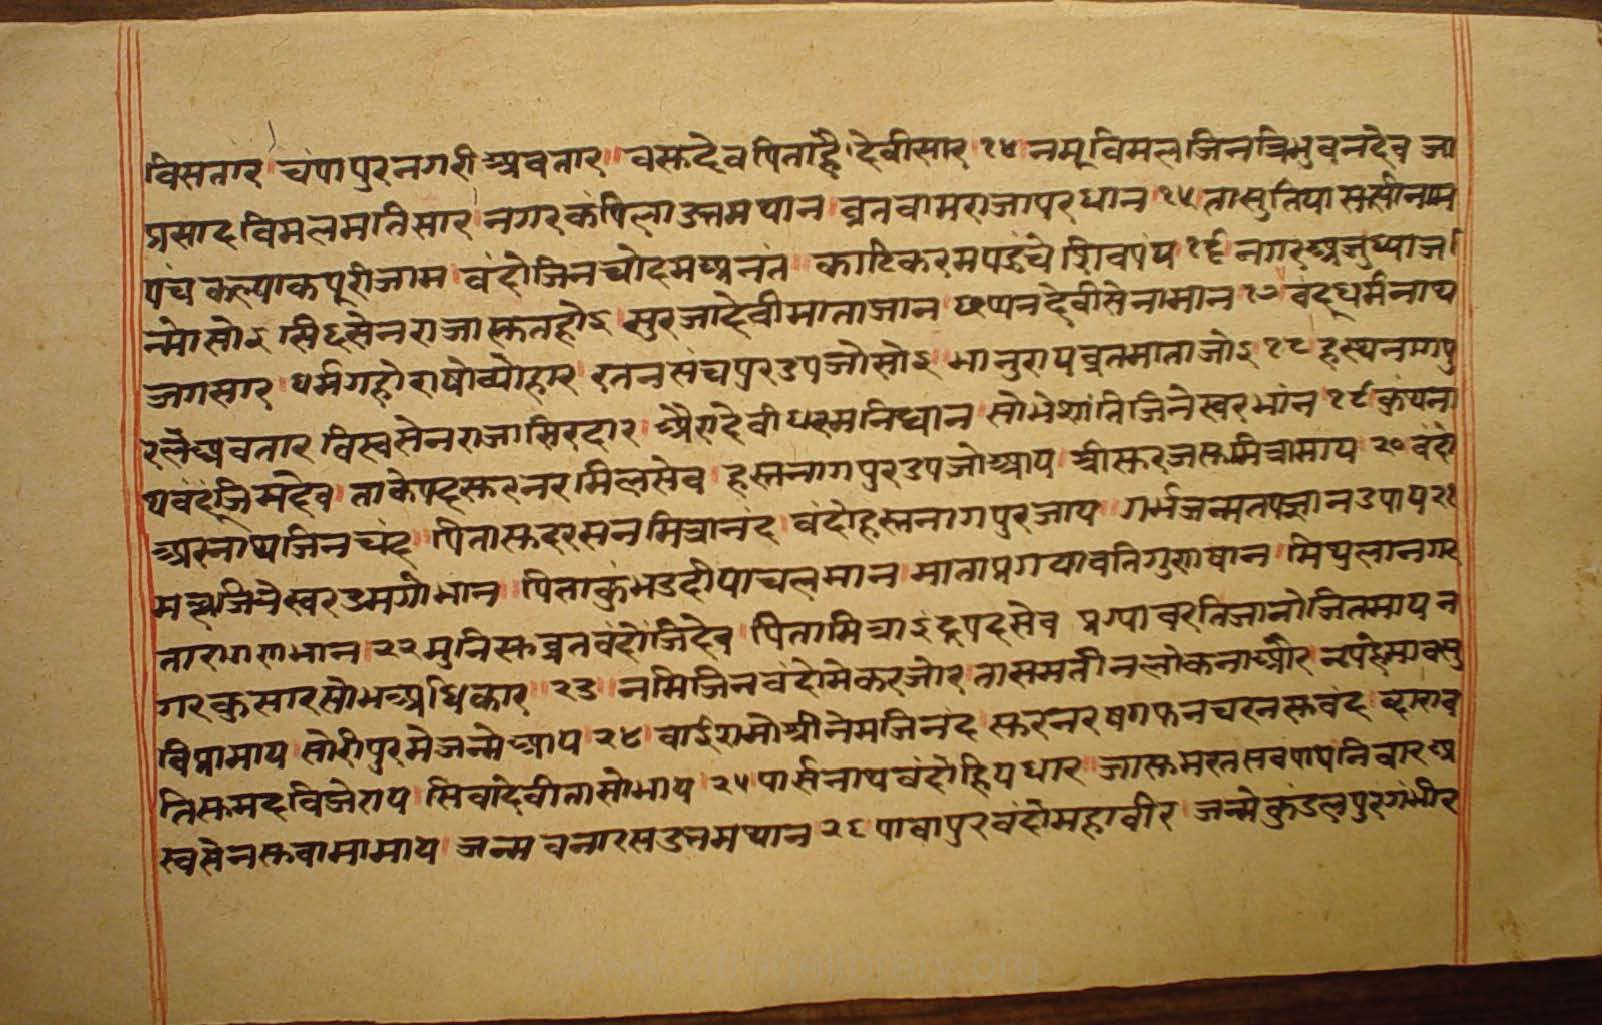 विसतार चंपापुरनगरीअवतार वस्तदेवपिताहै देवीसार १४ नमूविमलजिनत्रिभुवनदेव जा
प्रसादविमलमतिसार नगरकंपिलाउत्तमथान व्रतवामराजापरधान १५ तासुतिया सर्सानाम
पंच कल्याकपूरीजाम वंदोजिनचोदमअनंत काटिकरमपहुंचे शिवपंथ १६ नगरअजुध्याज
न्मोसोइ सिद्दसेनराजास्ततहोइ सुरजादेवीमाताजान छप्पनदेवीसेनामान १७ वंदूधर्मनाथ
जगसार धर्मगहोराषोव्योहार रतनसंचपुरउपजोसोइ भानुरायव्रतमाताजोइ १८ हस्थनागपु
रलैअवतार विस्वसेनराजासिरदार अैरादेवीधरमनिधान सोभेशांतिजिनेस्वरभांन १९ कुंथना
थवंदूजिमदेव ताकेपदस्तरनरमिलसेव हस्तनागपुरउपजोआय श्रीस्तरजस्तमित्रामाय २० वंदो
अरनाथजिनचंद पितास्तदरसनमित्रानंद वंदोहस्तनागपुरजाय गर्भजन्मतपज्ञानउपाय २१
मल्लजिनेस्वरउमगोभान पिताकुंभउदीयाचलमान माताप्रगयावतिगुराषान मिथुलानगर
तारागराभान २२ मुनिस्तव्रतवंदोजिंदेव पितामित्राइंद्रपदसेव प्रग्पावरतिजानोजितमायन
गरकुसारसोभअधिकार २३ नमिजिनवंदोमेकरजोर तासमतीनलोकनाऔर नपंहेमावसु
विप्रामाय सोरीपुरमेजन्मेआय २४ वाईशमोश्रीनेमजिनंद स्तरनरषगपतनचरनस्तवंद द्वाराव
तिस्तमदविजेराय सिवादेवीतासोमाय २५ पार्सनाथवंदोहियधार जास्तमरतसबपापनिवारअ
स्वसेनस्तवामामाय जन्म वनारसउत्तमथान २६ पावापुरवंदोमहावीर जन्मेकुंडलपुरगंभीर